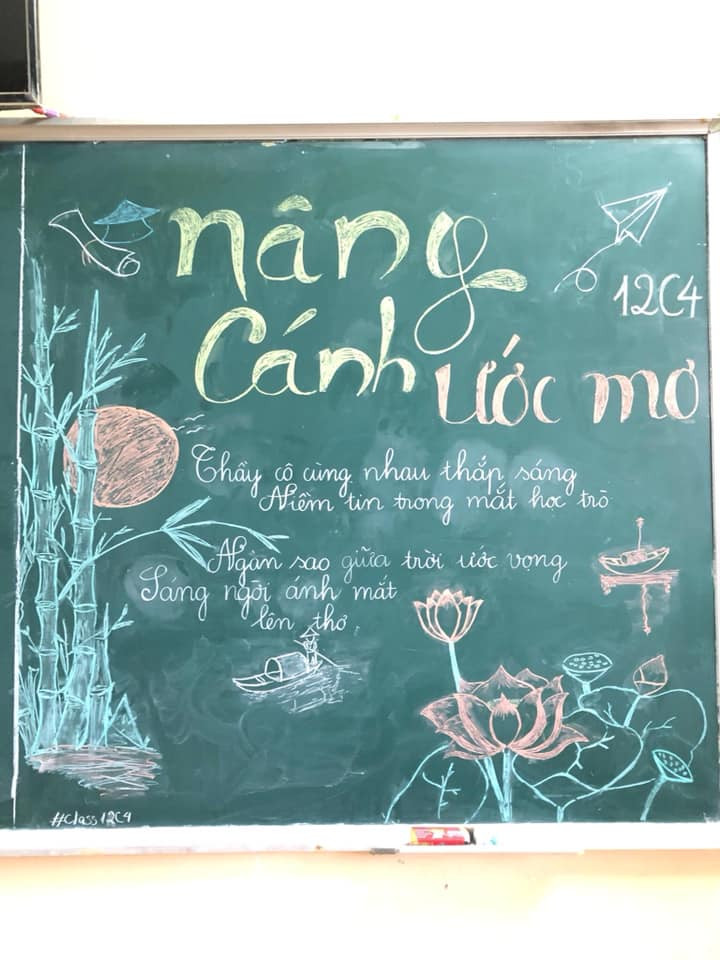 nâng
12C4
Cánh ước mơ
Thầy cô cùng nhau thắp sáng
Niềm tin trong mắt học trò
Ngàn sao giữa trời ước vọng
Sáng ngời ánh mắt
lên thơ.
#class12C4